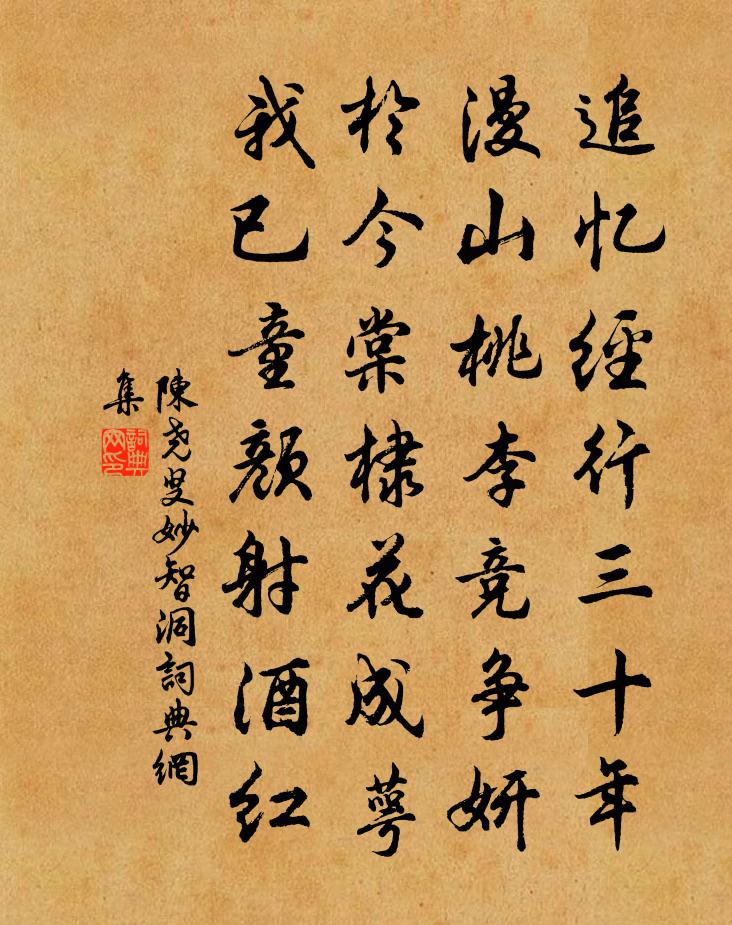 追忆經行三十年
漫山桃李竞争妍
於今棠棣花成萼
我已童顏射酒红
陳尧叟妙智洞詞典網
集
詞典網印